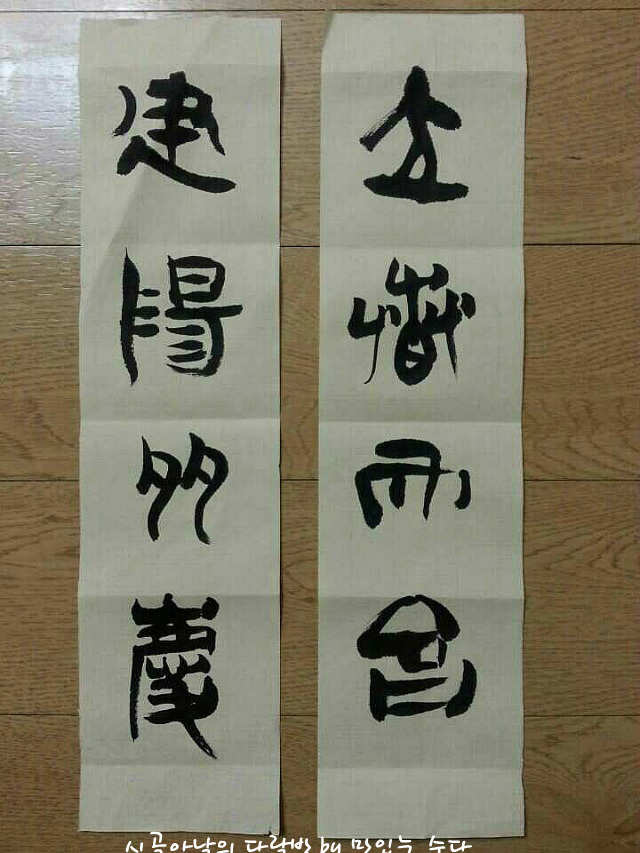 立春大吉
建陽多慶
시골아낙의 다락방 by 맛있는 수다